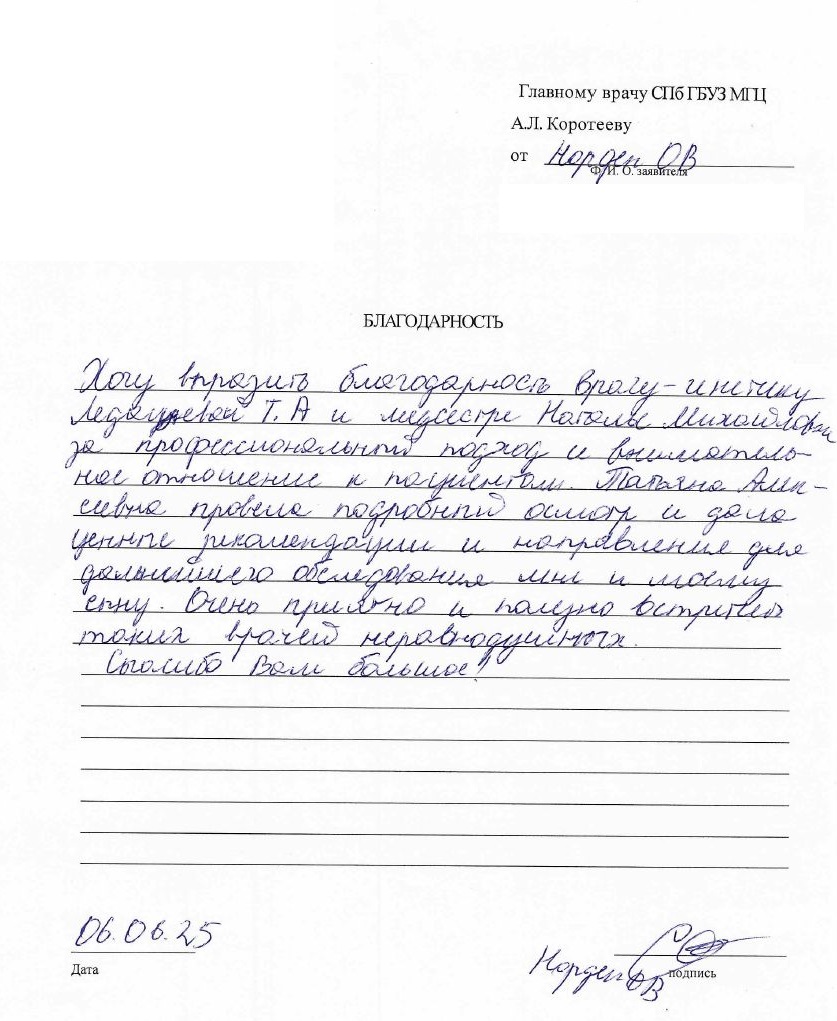 Главному врачу СПб ГБУЗ МГЦ
А.Л. Коротееву
от Норден ОВ
Ф. И. О. заявителя
БЛАГОДАРНОСТЬ
Хочу выразить благодарность врачу-генетику
Т.А и медсестре Наталье Михайловне
за профессиональный подход и вниматель-
ное отношение к пациентам. Татьяна Алек-
сеевна провела подробный осмотр и дала
ценные рекомендации и направления для
дальнейшего обследования мне и моему
сыну. Очень приятно и полезно встретить
таких врачей неравнодушных.
Спасибо Вам большое!
06.06.25
Дата
Норден ОВ
подпись